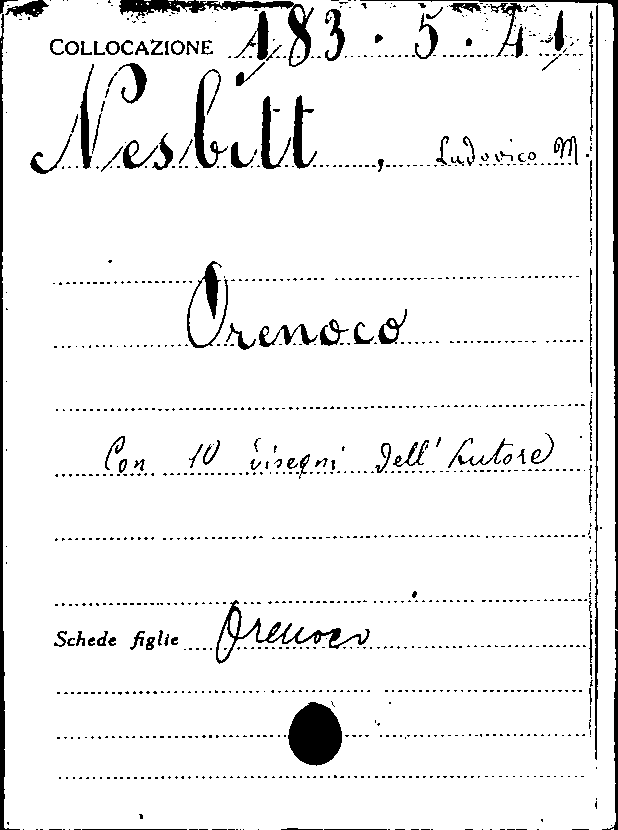 COLLOCAZIONE 183.5.41
Nesbitt, Ludovico M.
Orenoco
Con 10 disegni dell'Autore
Schede figlie Orenoco